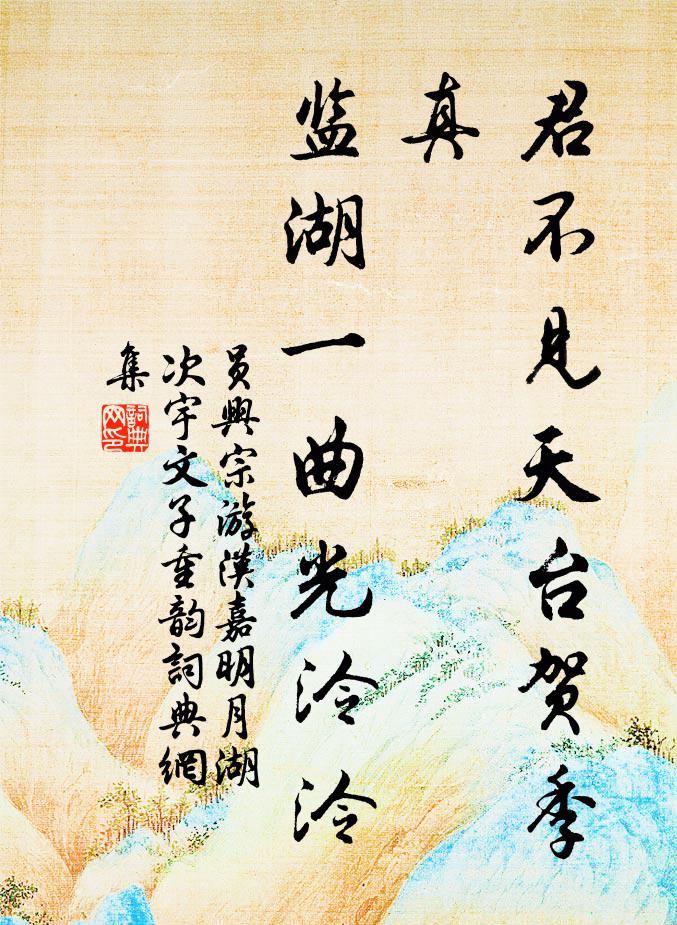 君不见天台贺季
真
监湖一曲光泠泠
员興宗游漢嘉明月湖
次宇文子重韵詞典網
集
詞典
网印